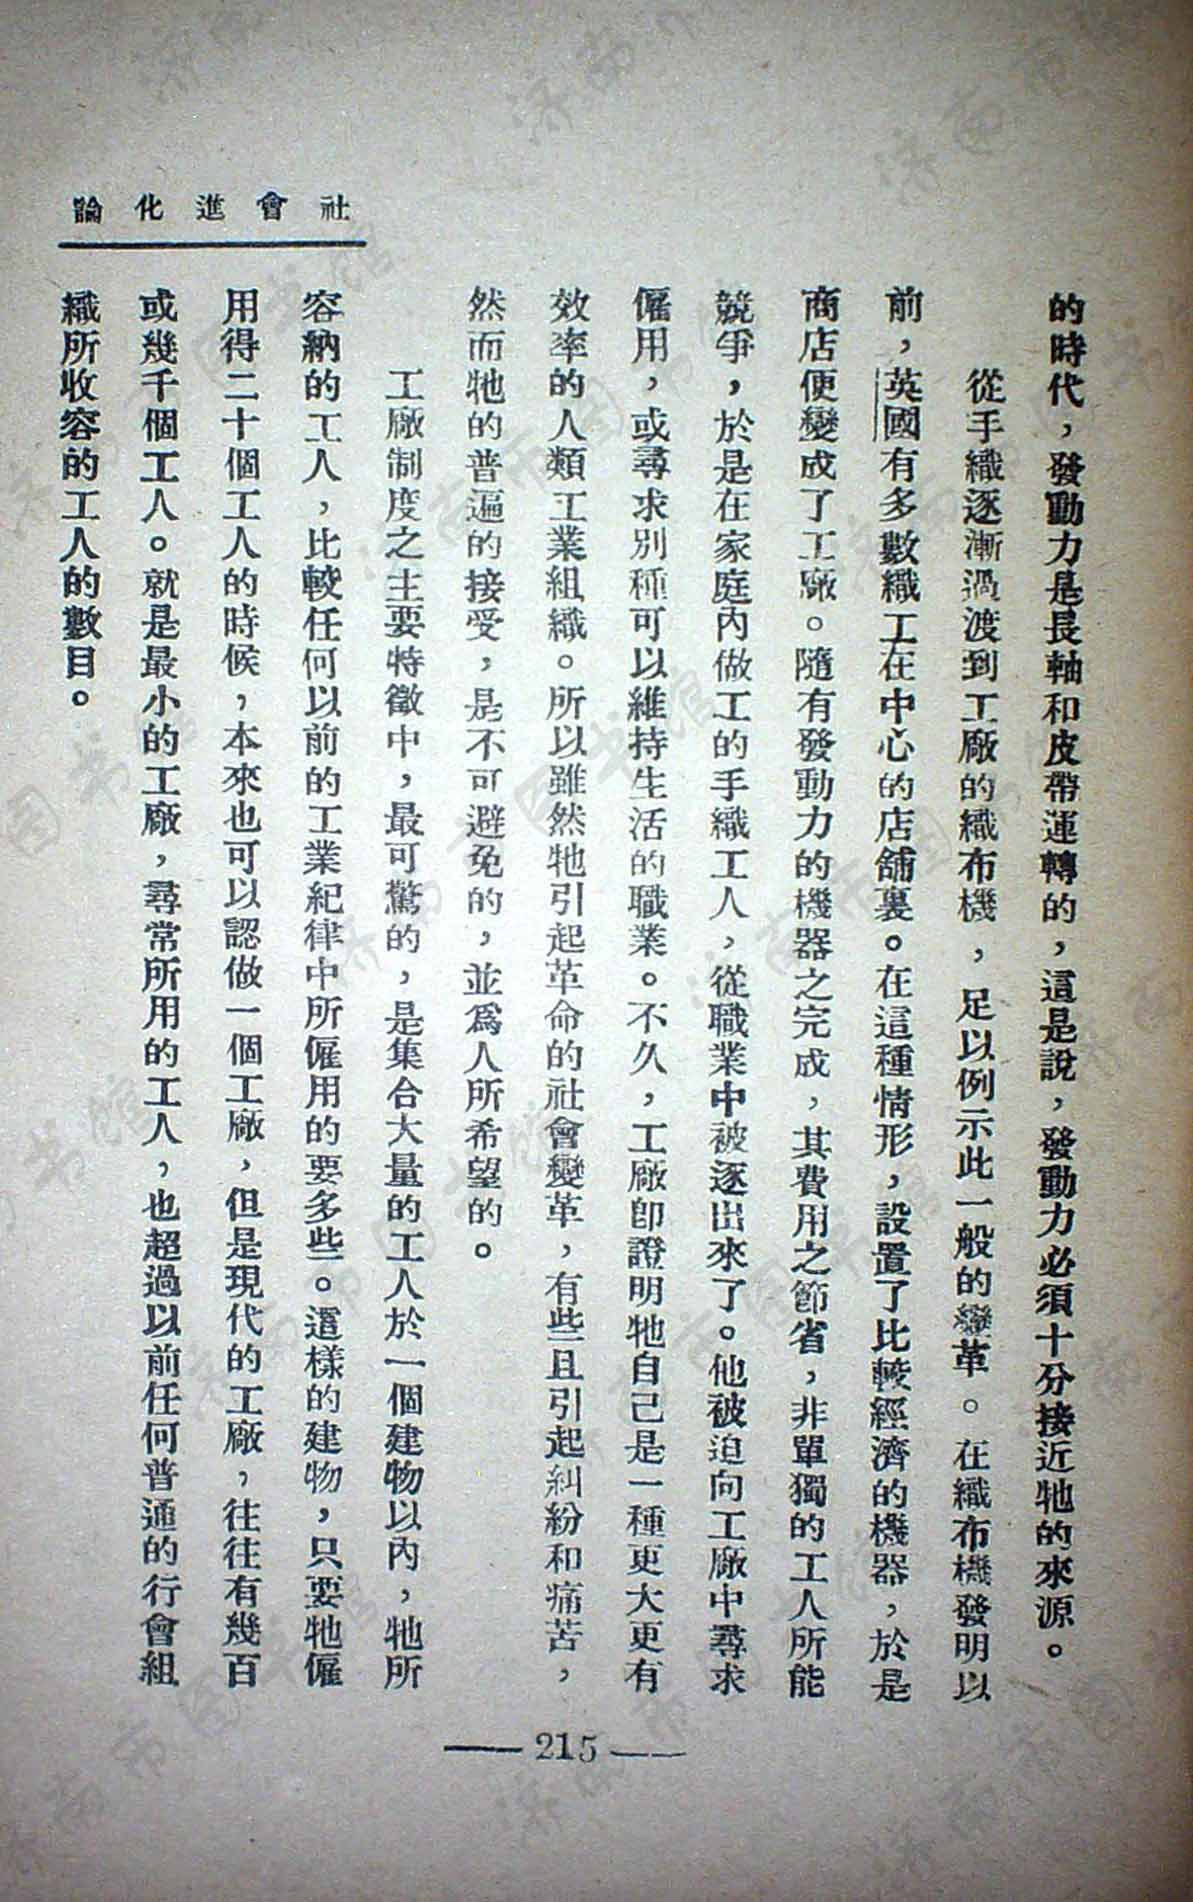 社會進化論
的時代，發動力是長軸和皮帶運轉的，這是說，發動力必須十分接近牠的來源。
從手織逐漸過渡到工廠的織布機，足以例示此一般的變革。在織布機發明以
前，英國有多數織工在中心的店舖裏。在這種情形，設置了比較經濟的機器，於是
商店便變成了工廠。隨有發動力的機器之完成，其費用之節省，非單獨的工人所能
競爭，於是在家庭內做工的手織工人，從職業中被逐出來了。他被迫向工廠中尋求
僱用，或尋求別種可以維持生活的職業。不久，工廠卽證明牠自己是一種更大更有
效率的人類工業組織。所以雖然牠引起革命的社會變革，有些且引起糾紛和痛苦，
然而牠的普遍的接受，是不可避免的，並爲人所希望的。
工廠制度之主要特徵中，最可驚的，是集合大量的工人於一個建物以內，牠所
容納的工人，比較任何以前的工業紀律中所僱用的要多些。這樣的建物，只要牠僱
用得二十個工人的時候，本來也可以認做一個工廠，但是現代的工廠，往往有幾百
或幾千個工人。就是最小的工廠，尋常所用的工人，也超過以前任何普通的行會組
織所收容的工人的數目。
—215—
济南市图书馆